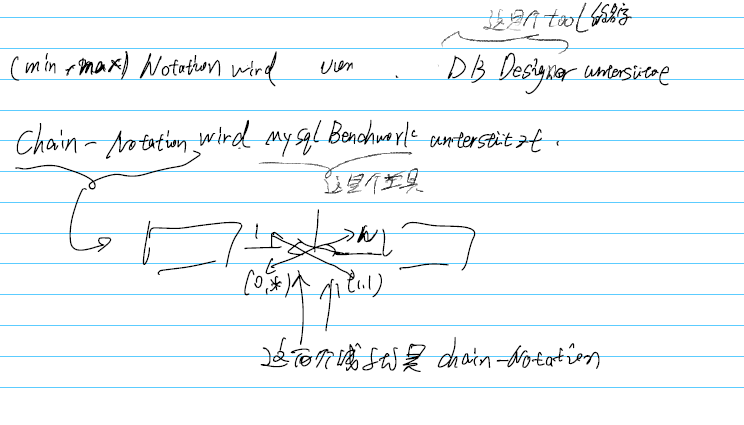 这是个tool的名字
(min,max) Notation wird von . DB Designer unterstütze
Chain-Notation wird mysql Benchwork unterstützt.
这是个工具
1 N
(0,*) (1,1)
这两个 是 chain-Notation